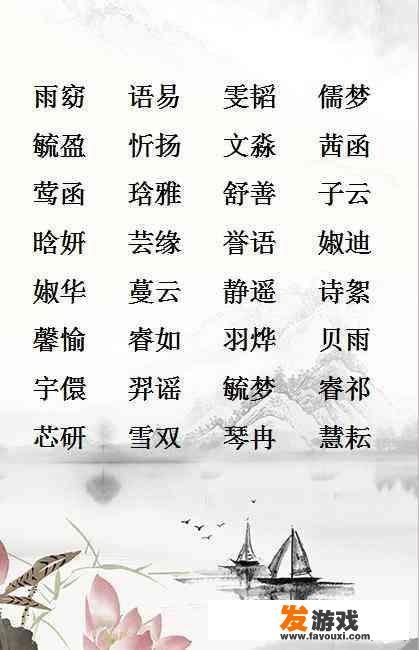 雨窈 语易 雯韬 儒梦
毓盈 忻扬 文淼 茜函
莺函 琀雅 舒善 子云
晗妍 芸缘 誉语 婌迪
婌华 蔓云 静遥 诗絮
馨愉 睿如 羽烨 贝雨
宇儇 羿谣 毓梦 睿祁
芯研 雪双 琴冉 慧耘
发游戏
www.fayouxi.com